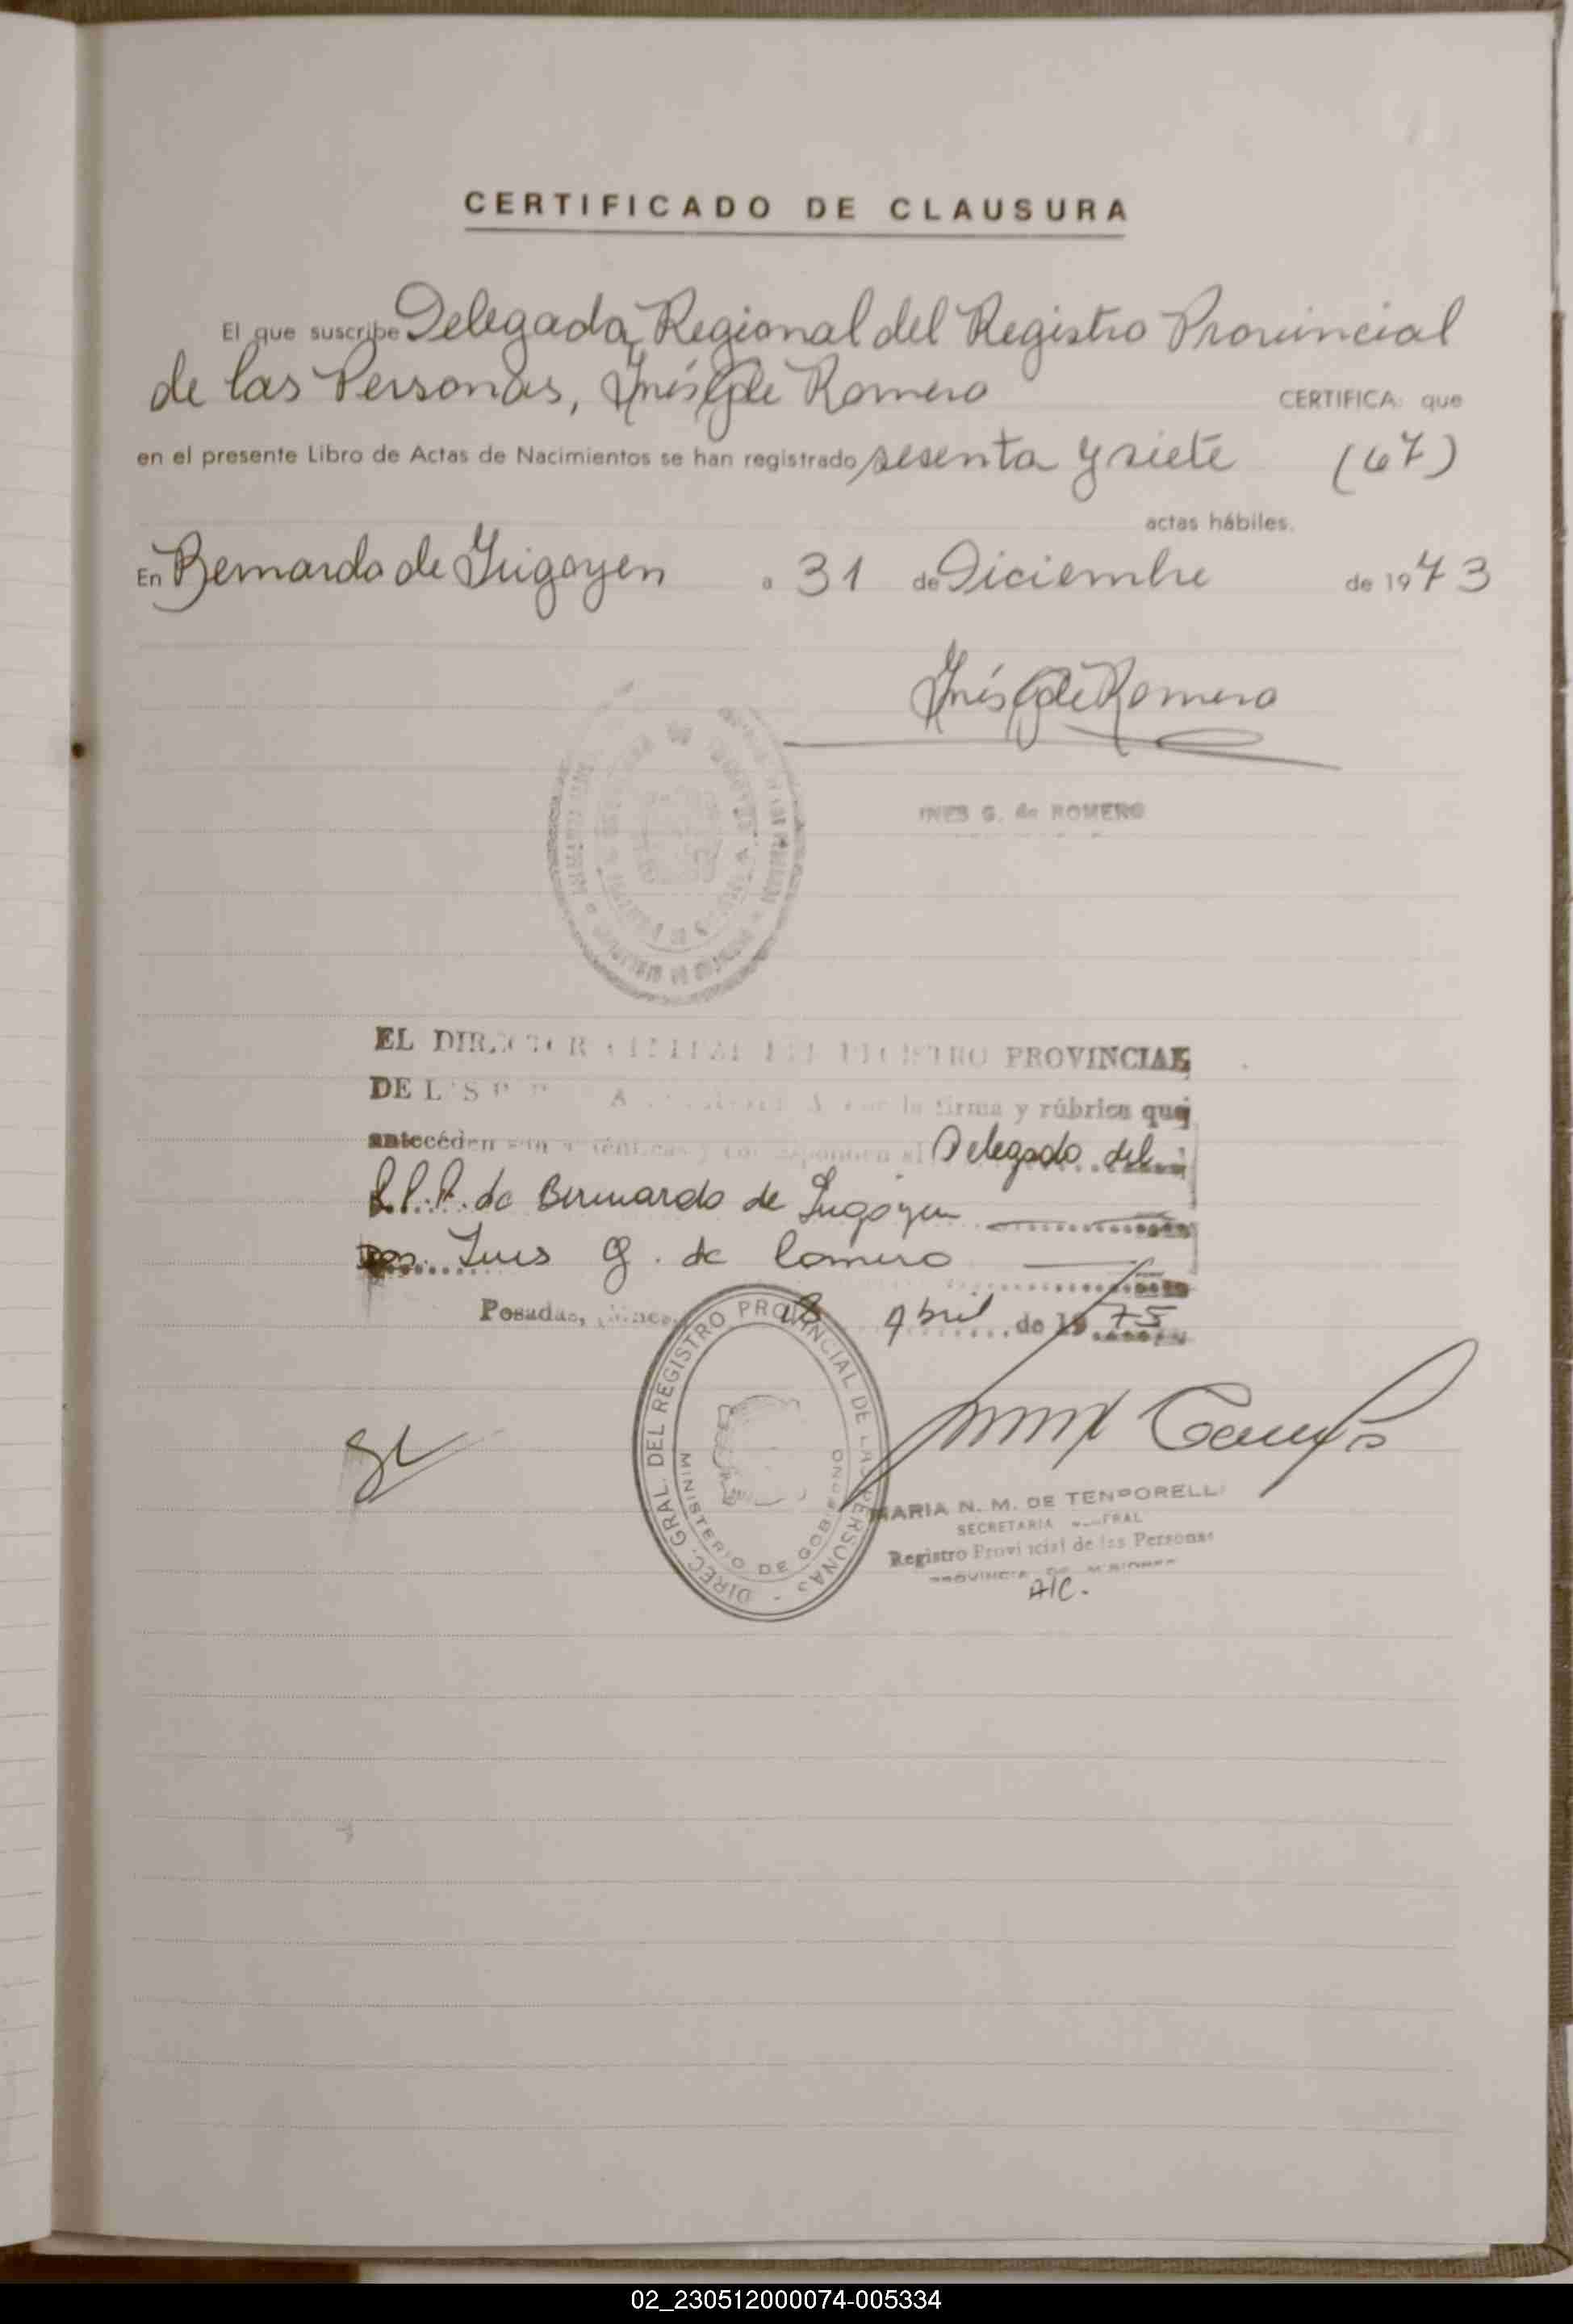 CERTIFICADO DE CLAUSURA
El que suscribe Delegada Regional del Registro Provincial
de las Personas, Inés G de Romero CERTIFICA: que
en el presente Libro de Actas de Nacimientos se han registrado sesenta y siete (67)
actas hábiles.
En Bernardo de Irigoyen a 31 de Diciembre de 1973
Inés G de Romero
INES G. de ROMERO
EL DIRECTOR REGISTRO PROVINCIAL
DE la firma y rúbrica que
anteceden son auténticas y corresponden al Delegado del
R.P.P. de Bernardo de Irigoyen
Don Ines G. de Romero
Posadas, Abril de 1975
DIREC. GRAL. DEL REGISTRO PROVINCIAL DE LAS PERSONAS -
MINISTERIO DE GOBIERNO
MARIA N. M. DE TEMPORELLI
SECRETARIA GENERAL
Registro Provincial de las Personas
PROVINCIA DE MISIONES
A/C.
02_230512000074-005334